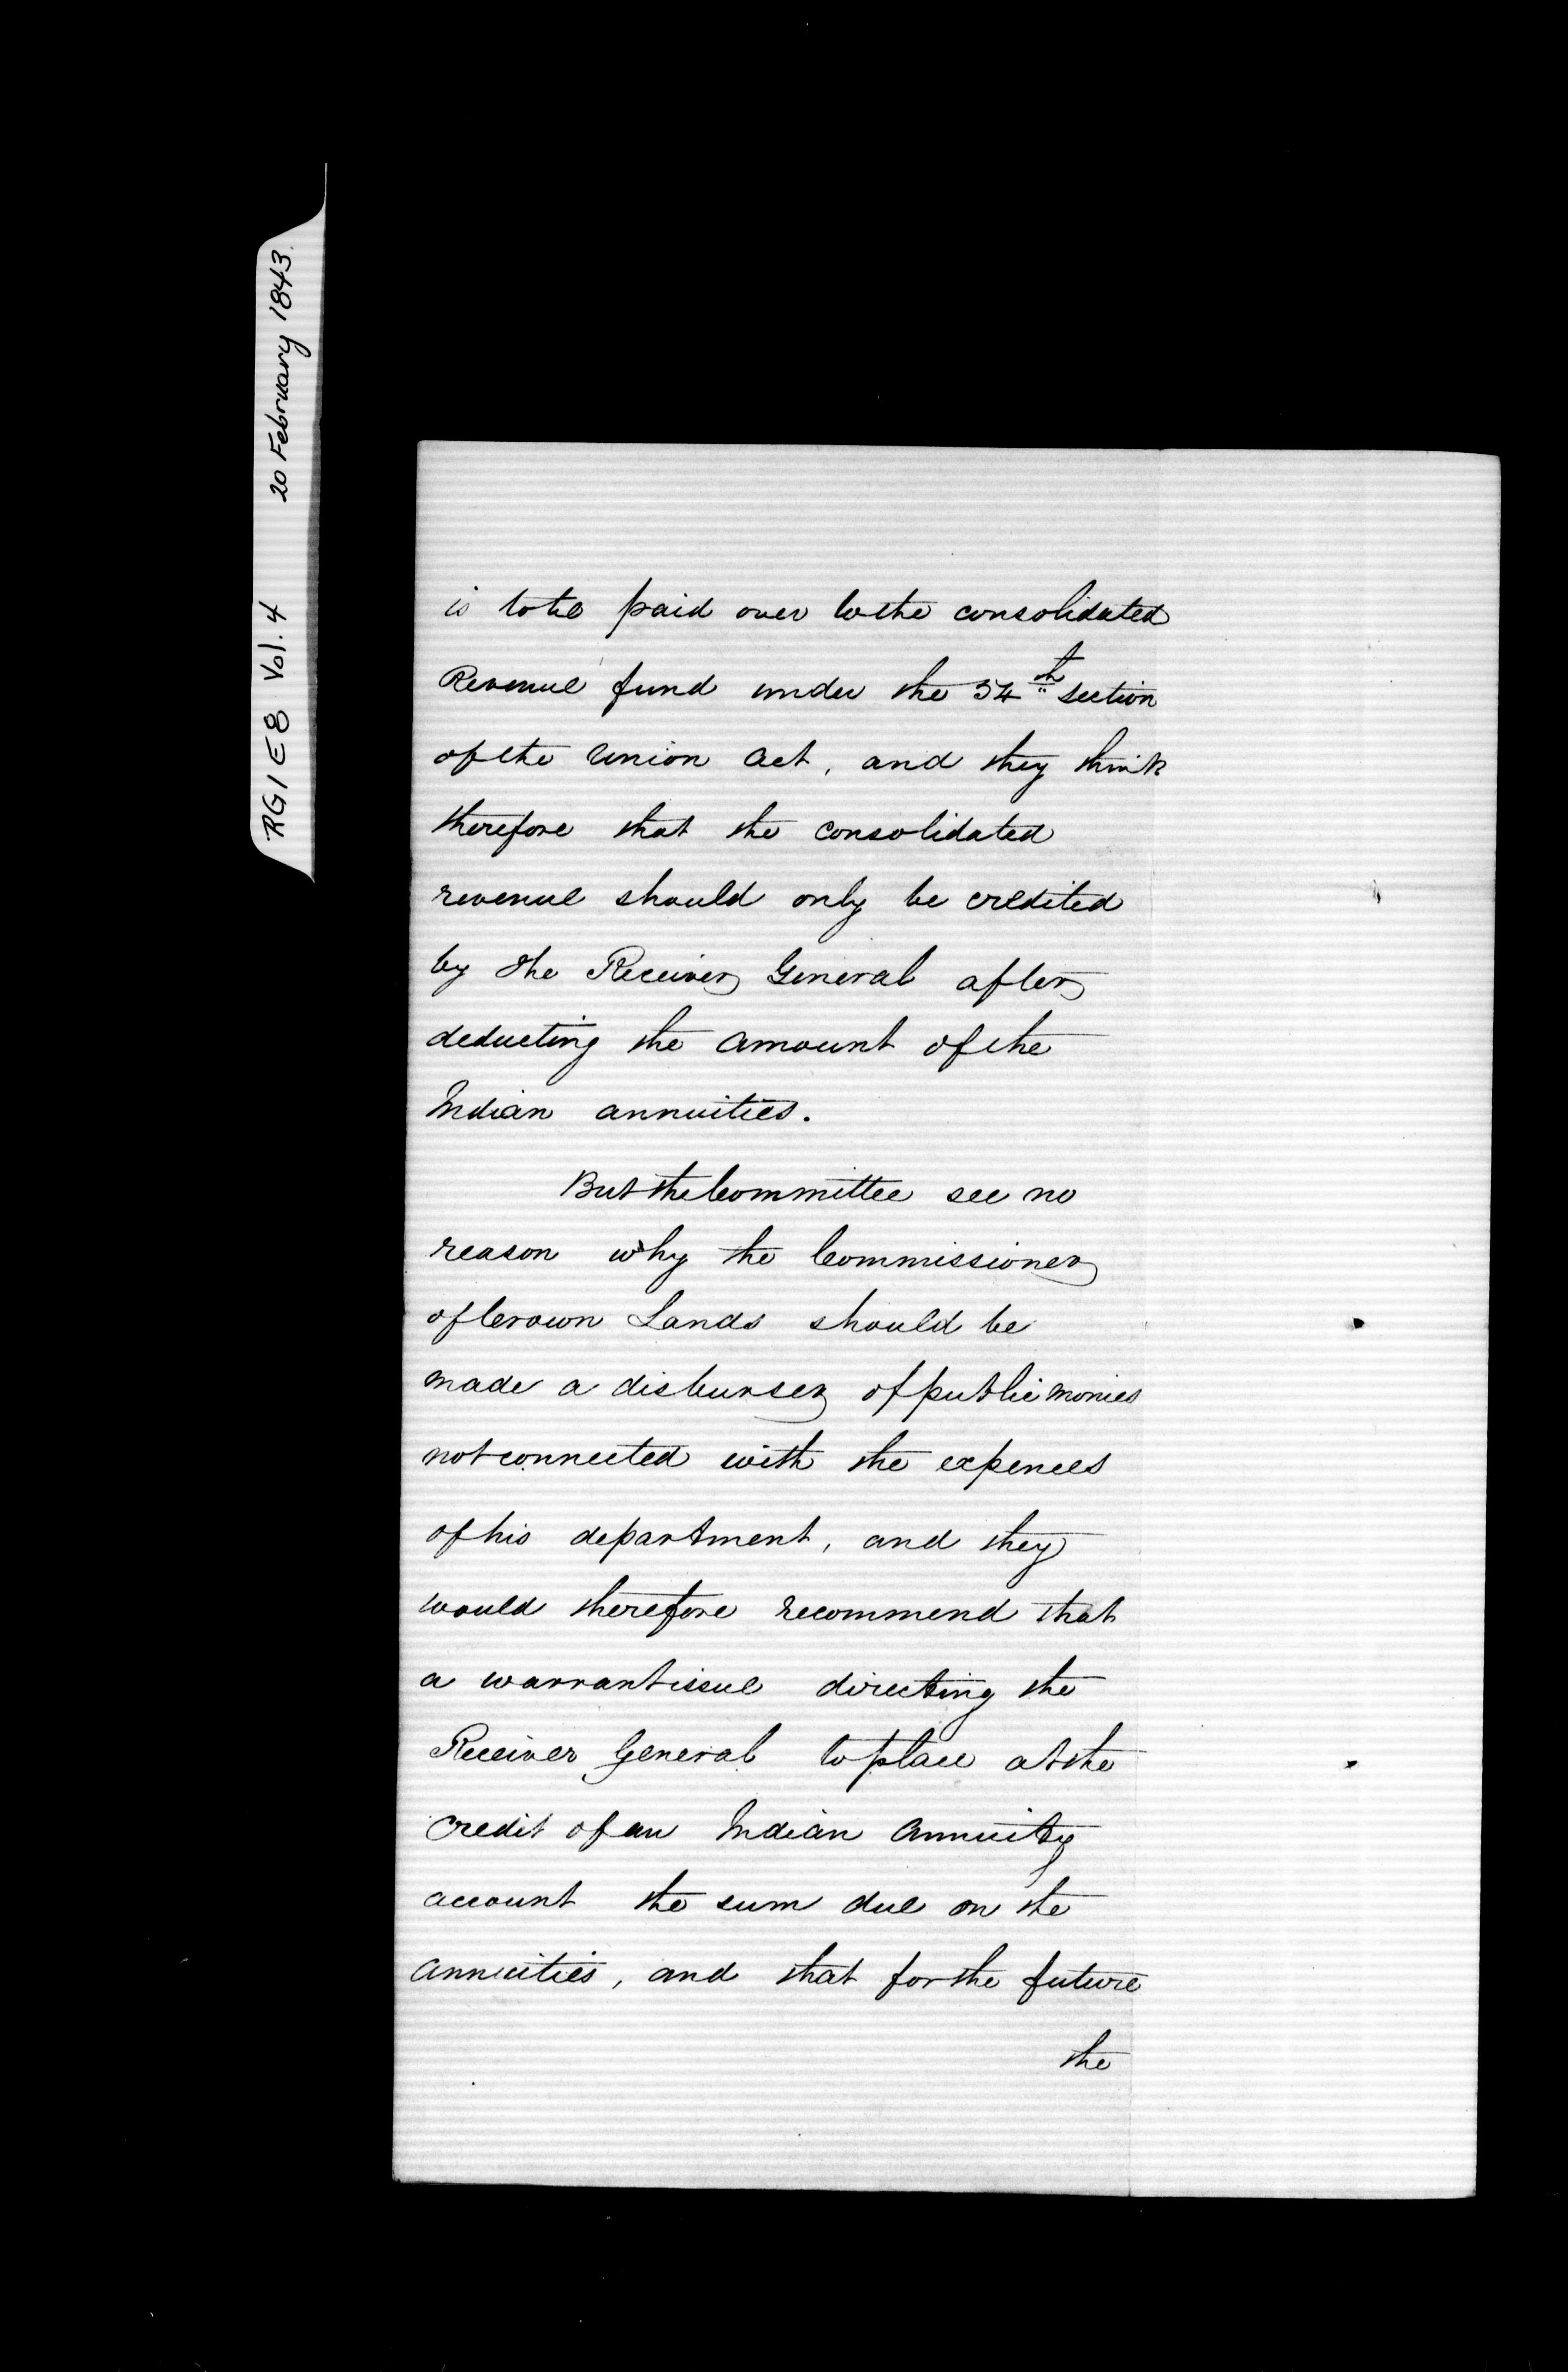 RG1 E8 Vol. 4 20 February 1843.
is to be paid over to the consolidated
Revenue fund under the 54th section
of the Union Act, and they think
therefore that the consolidated
revenue should only be credited
by the Receiver General after
deducting the amount of the
Indian annuities.
But the Committee see no
reason why the Commissioner
of Crown Lands should be
made a disburser of public monies
not connected with the expences
of his department, and they
would therefore recommend that
a warrant issue directing the
Receiver General to place at the
credit of an Indian Annuity
account the sum due on the
annuities, and that for the future
the